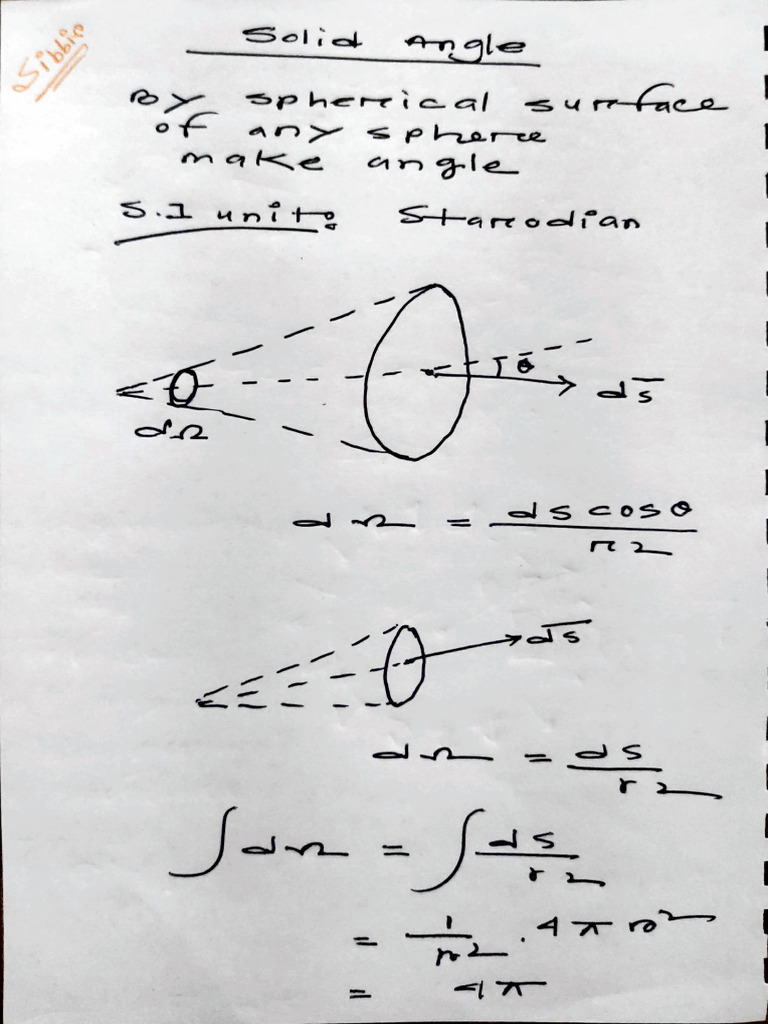 Sibbir
Solid Angle
By spherical surface
of any sphere
make angle
S.I unit: Starodian
θ
ds̅
dΩ
dΩ = ds cosθ / r2
ds̅
dΩ = ds / r2
∫dΩ = ∫ ds / r2
= 1/r2 . 4πr2
= 4π